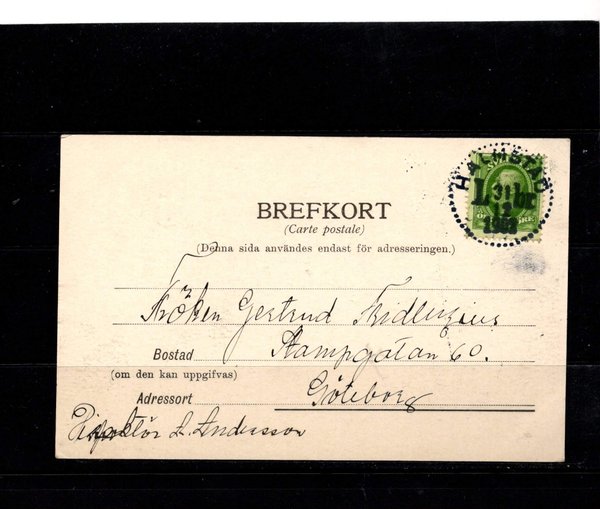 HALMSTAD
L 31 br
12
BREFKORT
(Carte postale)
(Denna sida användes endast för adresseringen.)
Fröken Gertrud Fridlizius
Bostad Stampgatan 60.
(om den kan uppgifvas)
Adressort Göteborg
A. Andersson